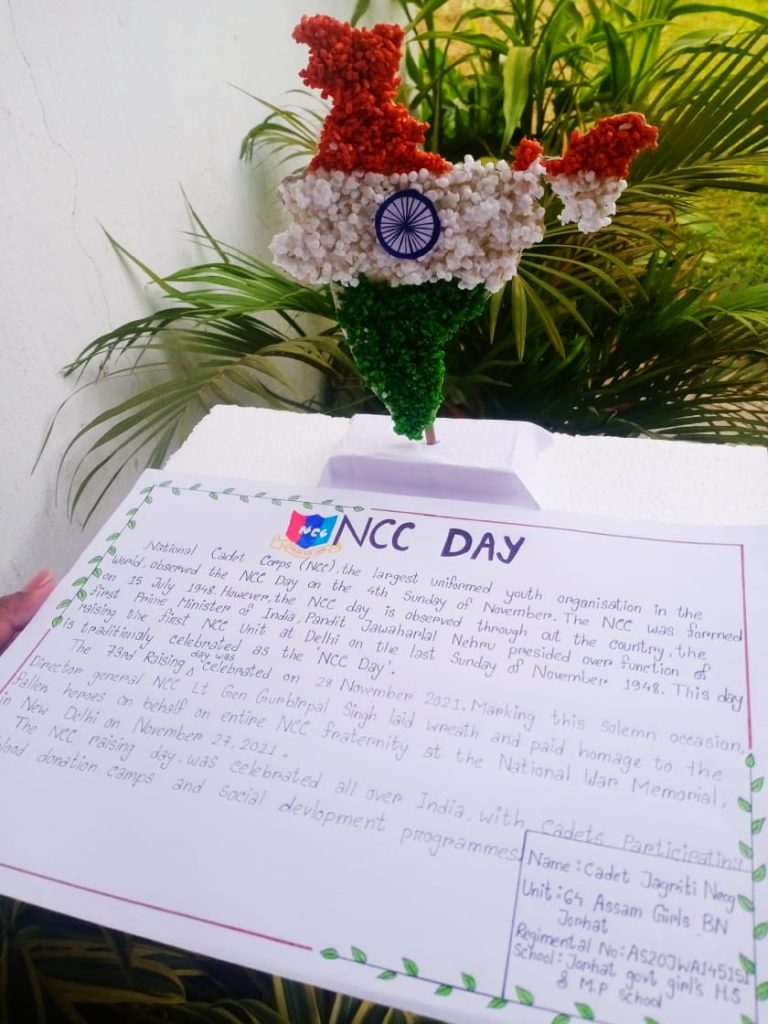 NCC
NCC DAY
National Cadet Corps (NCC), the largest uniformed youth organisation in the
world, observed the NCC Day on the 4th Sunday of November. The NCC was formed
on 15 July 1948. However, the NCC day is observed through out the country, the
first Prime Minister of India, Pandit Jawaharlal Nehru presided over function of
raising the first NCC Unit at Delhi on the last Sunday of November 1948. This day
is traditionaly celebrated as the 'NCC Day'.
The 73rd Raising day was celebrated on 28 November 2021. Marking this solemn occasion,
Director general NCC Lt Gen Gurbirpal Singh laid wreath and paid homage to the
fallen heroes on behalf on entire NCC fraternity at the National War Memorial,
in New Delhi on November 27, 2021.
The NCC raising day, was celebrated all over India, with cadets Participating
blood donation camps and social devlopment programmes.
Name : Cadet Jagriti Neog
Unit : 64 Assam Girls BN
Jorhat
Regimental No: AS20JWA145151
School : Jorhat govt girl's H.S
& M.P School